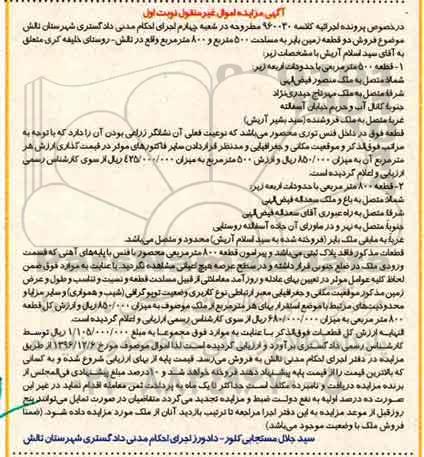 آگهی مزایده اموال غیر منقول نوبت اول
درخصوص پرونده اجرائیه کلاسه ۹۶۰۰۳۰ مطروحه در شعبه چهارم اجرای احکام مدنی دادگستری شهرستان تالش
موضوع فروش دو قطعه زمین بایر به مساحت ۵۰۰ متر مربع و ۸۰۰ متر مربع واقع در تالش- روستای خلیفه کری متعلق
به آقای سید اسلام آریش با مشخصات زیر:
۱- قطعه ۵۰۰ متر مربعی با حدودات اربعه زیر:
شمالا متصل به ملک منصور فیض الهی
شرقا متصل به ملک مهرتاج حیدری نژاد
جنوبا: کانال آب و حریم خیابان آسفالته
غربا متصل به ملک فروشنده (سید بشیر آریش)
قطعه فوق در داخل فنس توری محصور می باشد که نوعیت فعلی آن نشانگر زراعی بودن آن را دارد که با توجه به
مراتب فوق الذکر و موقعیت مکانی و جغرافیایی و مدنظر قراردادن سایر فاکتورهای موثر در قیمت گذاری ارزش هر
متر مربع آن به میزان ۸۵۰/۰۰۰ ریال و ارزش ۵۰۰ متر مربع به میزان ۴۲۵/۰۰۰/۰۰۰ ریال از سوی کارشناس رسمی
ارزیابی و اعلام گردیده است.
۲- قطعه ۸۰۰ متر مربعی با حدودات اربعه زیر:
شمالا متصل به باغ و ملک سعداله فیض الهی
شرقا متصل به راه عبوری آقای سعداله فیض الهی
جنوبا: متصل به نهر و در ماورای آن جاده آسفالته روستایی
غربا: به مابقی ملک بایر (فروخته شده به سید اسلام آریش) محدود و متصل می باشد.
قطعات مذکور فاقد پلاک ثبتی می باشد و پیرامون قطعه ۸۰۰ متر مربعی محصور با فنس با پایه های آهنی که قسمت
ورودی ملک در ضلع جنوبی قرار داشته و در سطح عرصه هیچ اعیانی مشاهده نگردید. با عنایت به موارد فوق ضمن
لحاظ کلیه عوامل موثر در تعیین بهای عادله و روز آمد معاملاتی از قبیل مساحت قطعه و نسبت و تناسب و طول و عرض
زمین مذکور موقعیت مکانی و جغرافیایی معبر ارتباطی نوع کاربری وضعیت توپوگرافی (شیب و همواری) و سایر مزایا و
محدودیت های مرتبط با موضع استقرار بهای هر متر مربع از ملک موصوف به میزان ۸۵۰/۰۰۰ ریال و ارزش کل قطعه
۸۰۰ متر مربعی به میزان ۶۸۰/۰۰۰/۰۰۰ ریال از سوی کارشناس رسمی ارزیابی و اعلام گردیده است.
النهایه ارزش کل قطعات فوق الذکر با عنایت به موارد فوق مجموعا به مبلغ ۱/۱۰۵/۰۰۰/۰۰۰ ریال توسط
کارشناس رسمی دادگستری برآورد و ارزیابی گردیده است لذا اموال موصوف مورخ ۱۳۹۶/۱۲/۶ از طریق
مزایده در دفتر اجرای احکام مدنی تالش به فروش می رسد. قیمت پایه از بهای ارزیابی شروع شده و به کسانی
که بالاترین قیمت را از قیمت پایه پیشنهاد دهند فروخته خواهد شد و ۱۰ درصد مبلغ پیشنهادی فی المجلس از
برنده مزایده دریافت و نامبرده مکلف است حداکثر تا یک ماه به پرداخت ثمن معامله اقدام نماید در غیر این
صورت ده درصد اولیه به نفع دولت ضبط و مزایده تجدید می گردد متقاضیان در صورت تمایل می توانند پنج
روز قبل از موعد مزایده به این دفتر اجرا مراجعه تا ترتیب بازدید آنان از ملک مورد مزایده داده شود. (ضمنا
فروش ملک با وضعیت موجود می باشد)
سید جلال مستجابی کلور- دادورز اجرای احکام مدنی دادگستری شهرستان تالش